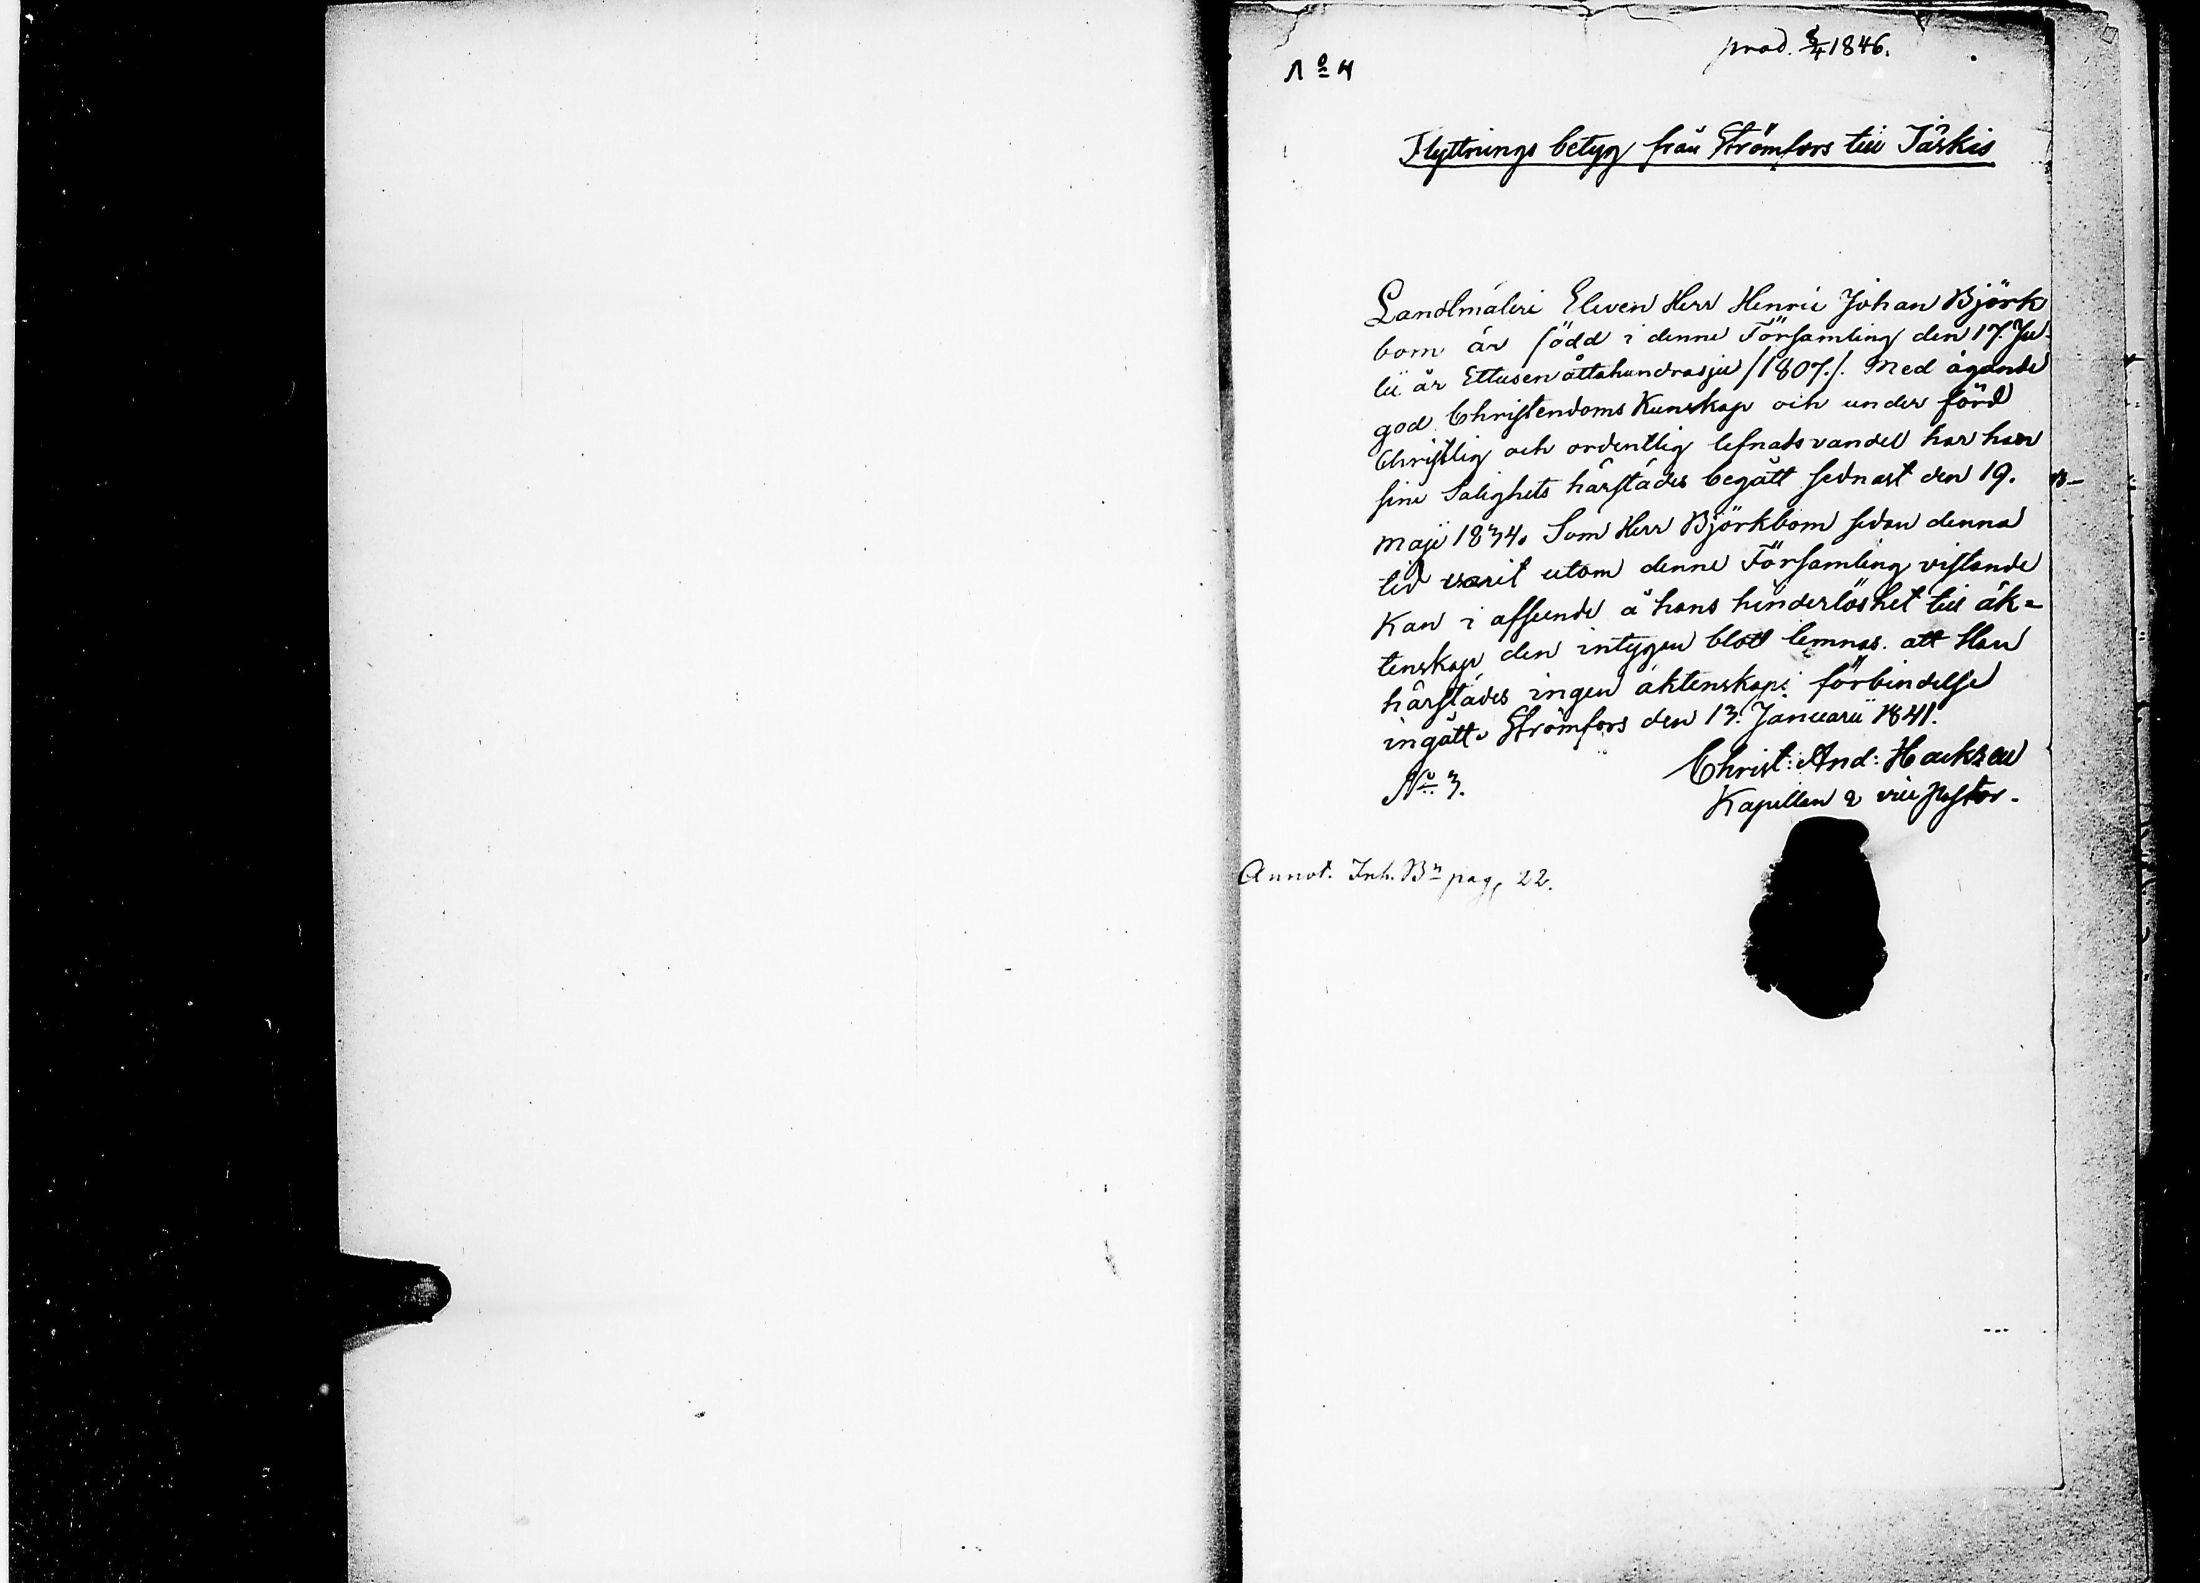 prod. 5/4 1846.
No 4
Flyttnings betyg från Strömfors till Jäskis
Landtmäteri Eleven Herr Henric Johan Björk
bom är född i denne Församling den 17. Ju-
lii år Ettusen åttahundrasju /1807./. Med ägande
god Christendoms Kunskap och under förd
Christlig och ordentlig lefnadsvandel har han
sine Salighets härstädes begått sednast den 19.
Maji 1834. Som Herr Björkbom sedan denna
tid varit utom denne Församling vistande
Kan i afseende å hans hinderlöshet till äk=
tenskap den intygan blott lemnas att Han
härstädes ingen äktenskaps förbindelse
ingått. Strömfors den 13. Januarii 1841.
Christ: And: Hackzell
No 3.
Kapellan & vice Pastor.
Annot. Inh. Bn pag, 22.